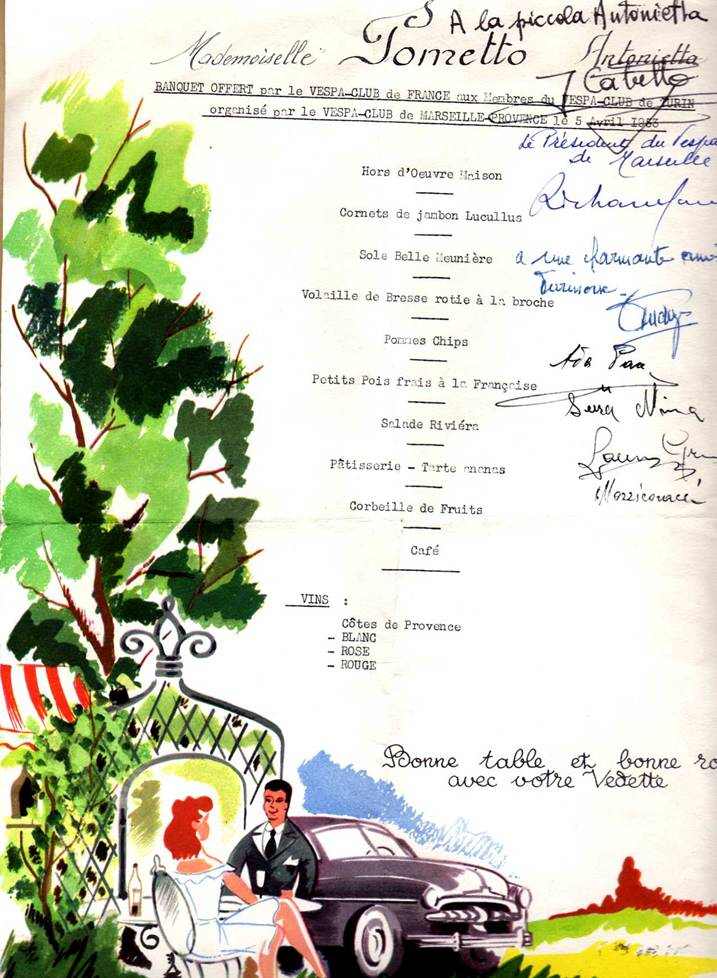 A la piccola Antonietta
Mademoiselle Tometto Antonietta
BANQUET OFFERT par le VESPA-CLUB de FRANCE aux Membres du VESPA-CLUB de TURIN
organisé par le VESPA-CLUB de MARSEILLE-PROVENCE le 5 Avril 1953
Le Président du Vespa
de Marseille
Hors d'Oeuvre Maison
Cornets de jambon Lucullus
Sole Belle Meunière
à une charmante
Volaille de Bresse rotie à la broche
Pommes Chips
Petits Pois frais à la Française
Nina
Salade Riviéra
Pâtisserie - Tarte ananas
Corbeille de Fruits
Café
VINS :
Côtes de Provence
- BLANC
- ROSE
- ROUGE
Bonne table et bonne ro
avec votre Vedette